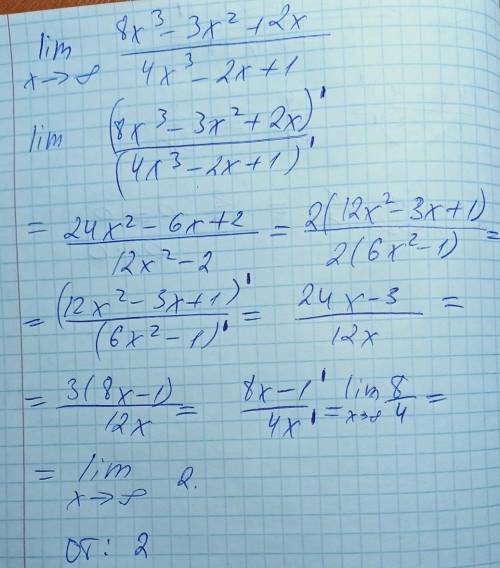 lim x→∞ (8x³ - 3x² + 2x) / (4x³ - 2x + 1)
lim (8x³ - 3x² + 2x)' / (4x³ - 2x + 1)'
= (24x² - 6x + 2) / (12x² - 2) = 2(12x² - 3x + 1) / 2(6x² - 1) =
= (12x² - 3x + 1)' / (6x² - 1)' = (24x - 3) / 12x =
= 3(8x - 1) / 12x = 8x - 1' / 4x' = lim x→∞ 8/4 =
= lim x→∞ 2.
от: 2